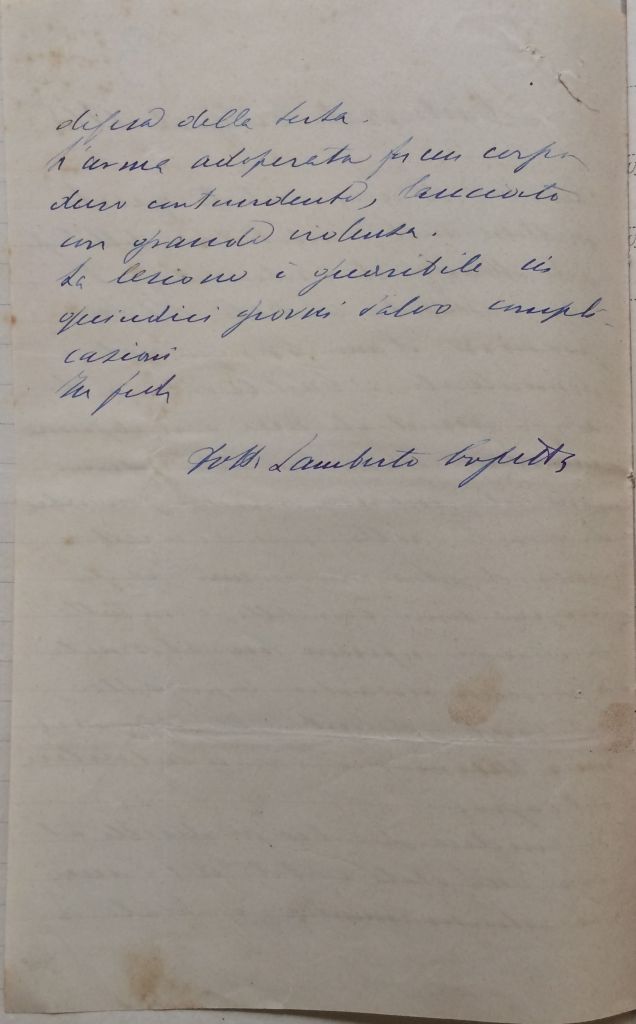 difesa della testa.
L'arma adoperata fu un corpo
duro contundente, lanciato
con grande violenza.
La lesione è guaribile in
quindici giorni salvo compli-
cazioni
In fede
Dott. Lamberto